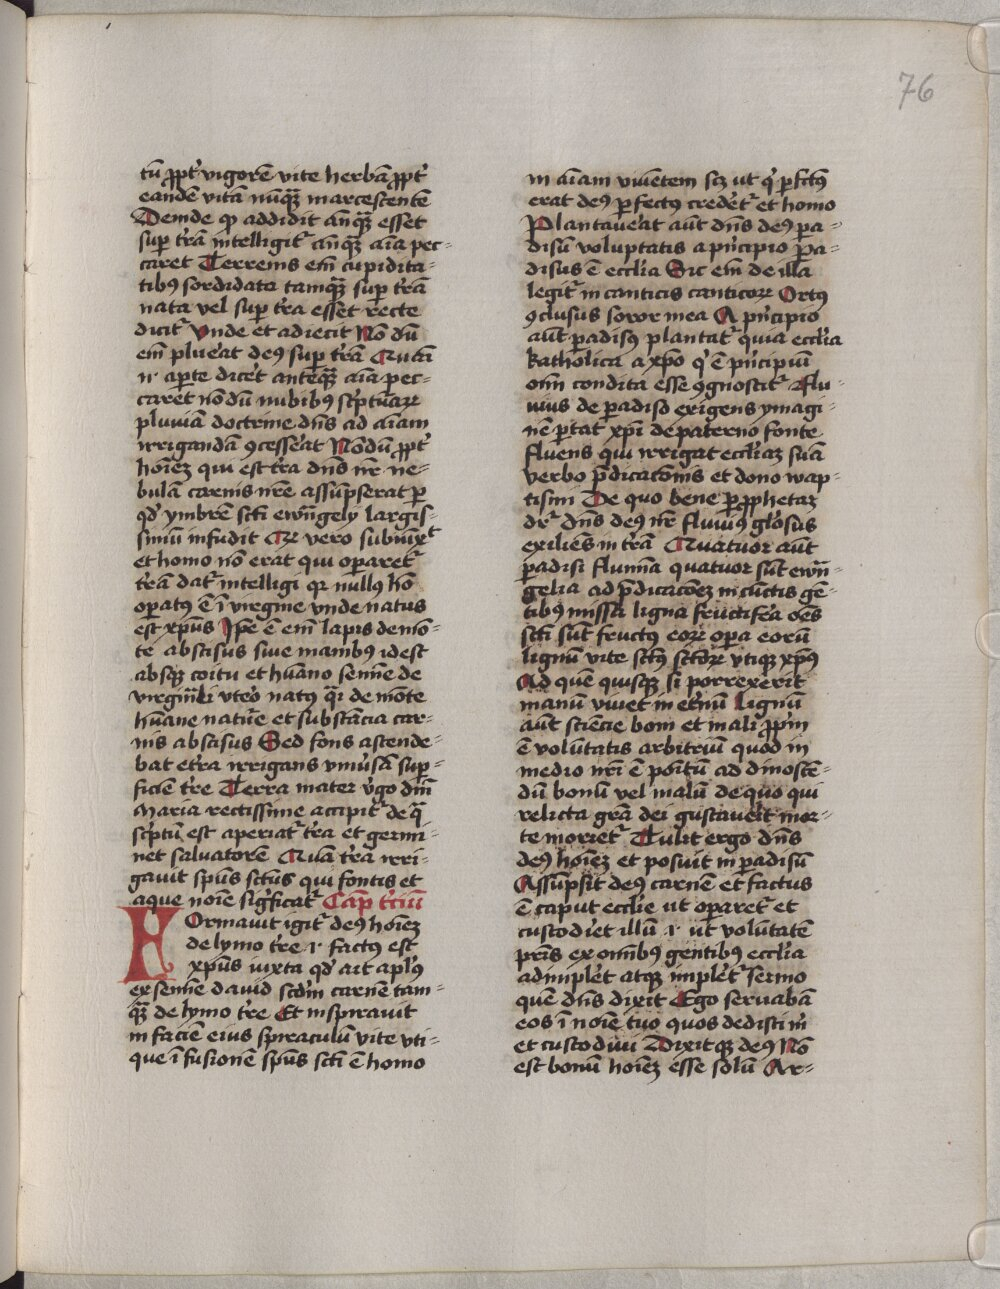 76
tū ꝓpt͛ vigorē vite herbā ꝓpt͛
eandē vitā nūqꝫ marcescentē
Deinde qꝫ addidit anqꝫ esset
sup trā intelligit᷑ anqꝫ aīa pec-
caret Terrenis em̄ cupidita-
tibꝰ sordidata tamqꝫ sup trā
nata vel sup tra esset recte
dicit᷑ Vnde et adiecit Nō dū
em̄ plueāt deꝰ sup trā Qua
n̄ aperte dicēt anteqꝫ aīa pec-
caret nōdū nubibꝰ scpturaꝝ
pluviā doctrine dn̄s ad aīam
irrigandā ꝯcesseāt Nōdū ꝓpt͛
hoīeꝫ qui est tra dn̄s nr̄ ne-
bulā carnis nr̄e assūpserat ꝑ
qd̛ ymbrē scti ewn̄gely largis-
simū infudit Qꝛ vero subnīxt
et homo nō erat qui operaret᷑
trā dat᷑ intelligi qꝛ nullꝰ hō
opatꝰ ē ī virgine vnde natus
est xp̄us Ipe ē em̄ lapis de mō-
te abscisus sine manibꝰ id est
absqꝫ coitu et hūano semīe de
virginali vteo natꝰ q̄i de mōte
hūane nature et substācia car-
nis abscisus Sed fons ascende-
bat e tra irrigans vniūsā sup-
ficiē tre Terra mater vgo dn̄i
Maria rectissime accipit᷑ de q̄
scptū est aperiat᷑ tra et germi-
net salvatorē Quā trā irri-
gavit sp̄us sctūs qui fontis et
aque noīe sigficat᷑ Cap tciū
Formavit igit᷑ deꝰ hoīeꝫ
de lymo tre ⁊ factꝰ est
xp̄us iuxta qd̛ ait aplꝰ
ex semīe david scdm̄ carnē tam-
qꝫ de lymo tre Et inspiravit
in faciē eius spiraculū vite vti-
que ī fusionē sp̄us scti ē homo
in aīam viuētem scꝫ ut q̛ pfctꝰ
erat deꝰ perfectꝰ credet᷑ et homo
Plantaveat aūt dn̄s deꝰ pa-
disū voluptatis a pncipio Pa-
disus ē ecclīa Sic em̄ de illa
legit᷑ in canticis canticoꝝ Ortꝰ
ꝯclusus soror mea A pncipio
aūt padisꝰ plantat᷑ quia ecclīa
katholica a xp̄o q̛ ē pncipiū
oīm condita esse ꝯgnoscit᷑ Flu-
uius de padiso exigens ymagi-
nē ptat xp̄i de paterno fonte
fluens qui irrigat eccliaꝫ suā
verbo pdicacōnis et dono wap-
tismi De quo bene ꝑ ꝓphetaꝫ
dr̄ dn̄s deꝰ nr̄ fluviꝰ glōsus
exiliēs in trā Quatuor aūt
padisi flumīa quatuor sūt ewn̄-
gelia ad pdicacōeꝫ in cūctis gē-
tibꝰ missa ligna fructifea oēs
scti sūt fructꝰ eoꝝ opa eorū
lignū vite sctꝰ sctoꝝ vtiqꝫ xp̄ꝰ
Ad quē quisqꝫ si porrexerit
manū vivet in etnū Lignū
aūt sciēcie boni et mali ꝓpm̄
ē volūtatis arbitriū quod in
medio nr̄i ē poītū ad dinoscē-
dū bonū vel malū de quo qui
relicta grā dei gustaverit mor-
te moriet᷑ Tulit ergo dn̄s
deꝰ hoīeꝫ et posuit in padisū
Assūpsit deꝰ carnē et factus
ē caput ecclīe ut operaret᷑ et
custodiet illū ⁊ ut volūtatē
pris ex omībꝰ gentibꝰ ecclīa
adimplet atqꝫ implet᷑ Sermo
quē dn̄s dixit Ego servabā
eos ī noīe tuo quos dedisti m̄
et custodivi Dixitqꝫ deꝰ Nō
est bonū hoīeꝫ esse solū Ar-